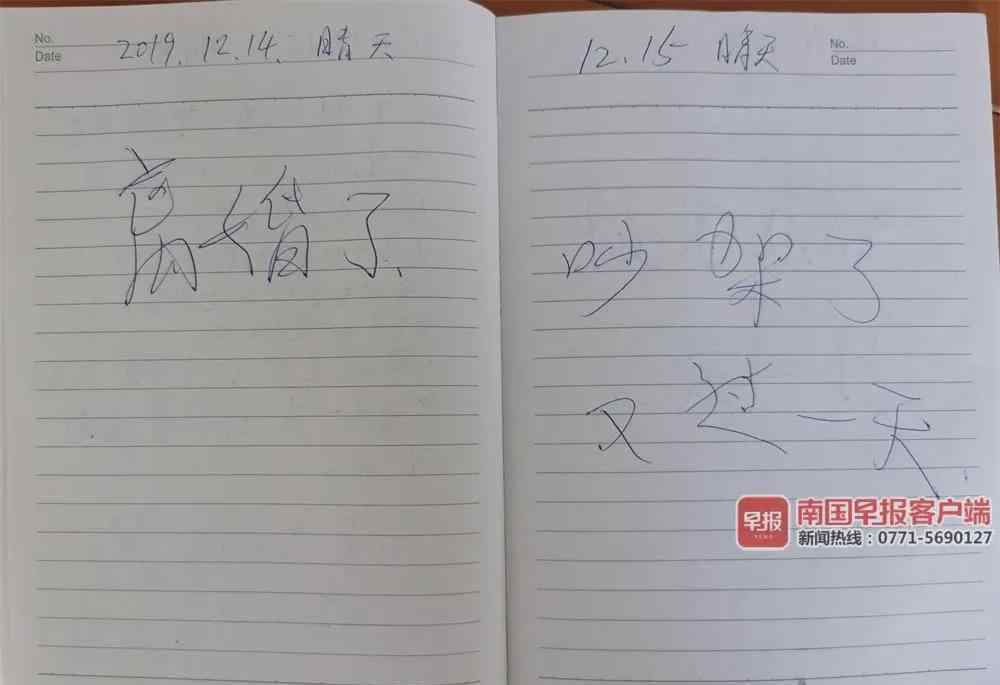 No.
Date
2019.12.14. 晴天
离婚了.
12.15 晴天
No.
Date
吵架了
又过一天.
早报
NEWS
南国早报客户端
新闻热线：0771-5690127